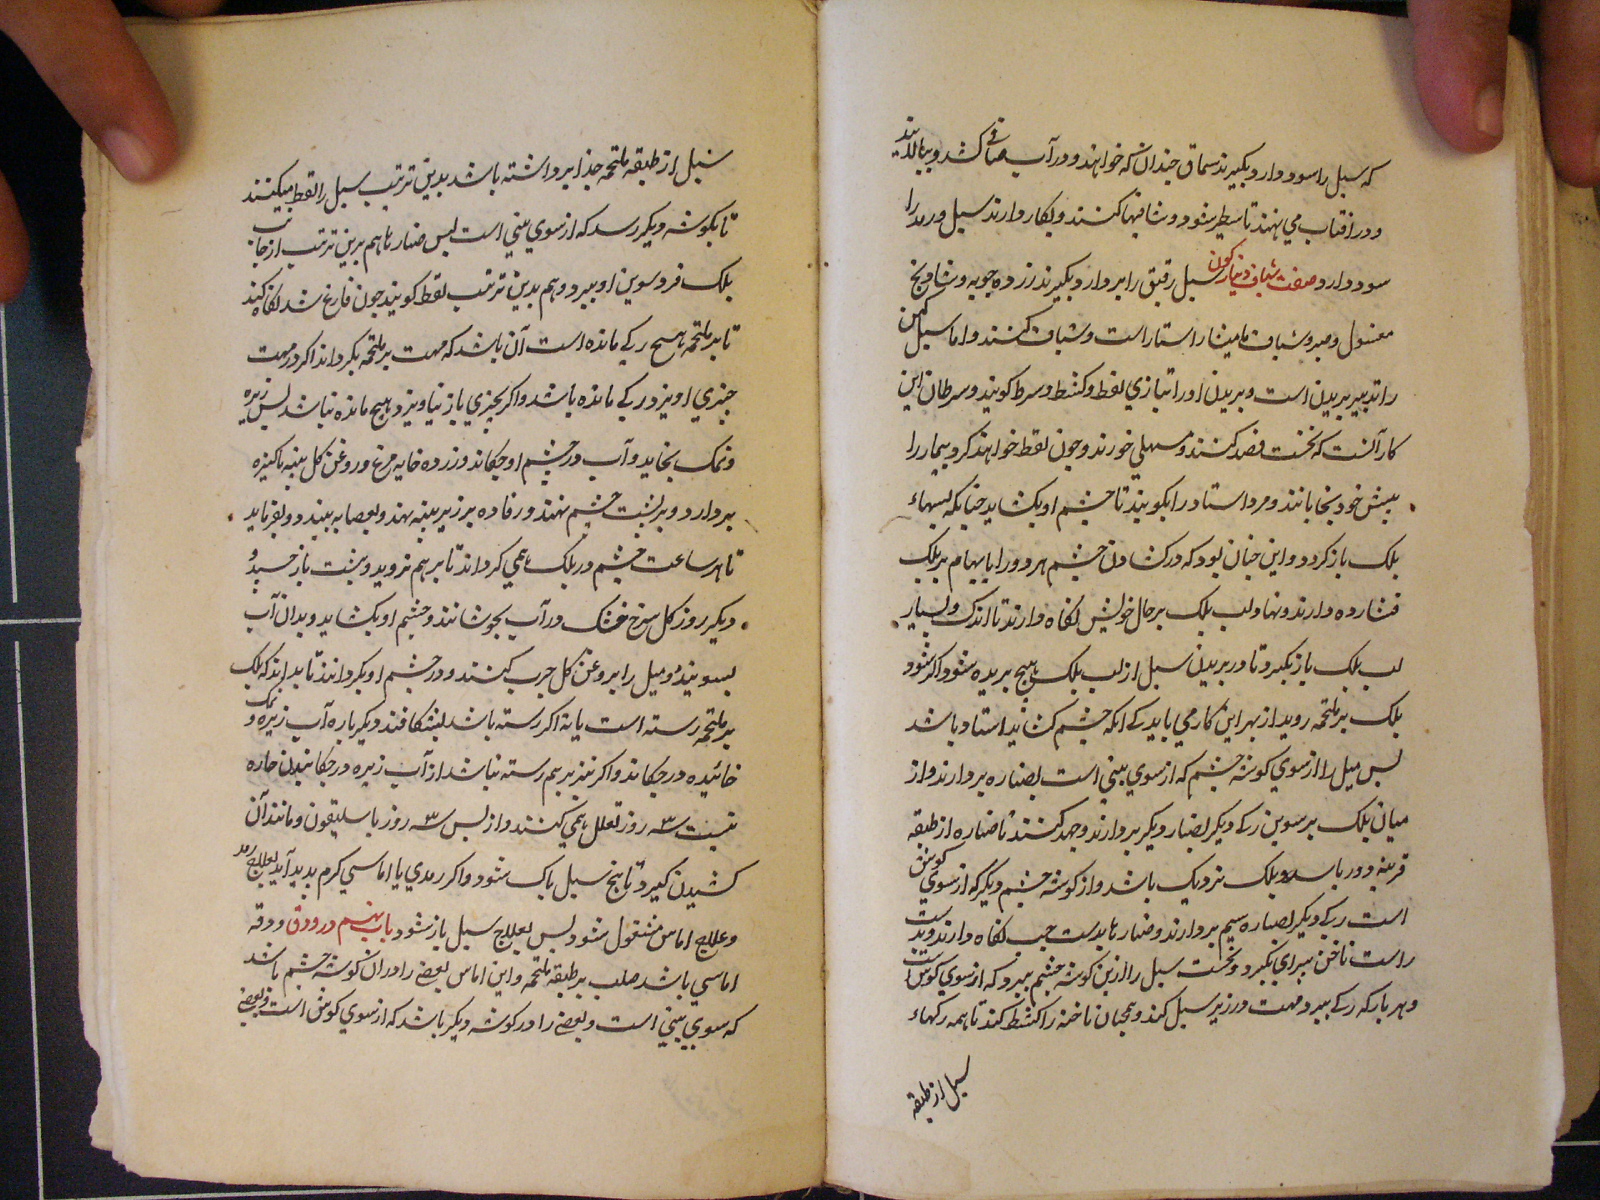 که سبل را سود دارد و بکیرند سماق جندانک خواهند و در آب صافی کنند و بپالایند
و در افتاب می نهند تا سطبر شود و شافها کنند و بکار دارند سبل و رمد را
سود دارد صفت شیاف دینارکون سبل رقیق را بردارد و بکیرند زرده جوبه و شادنج
مغسول و صبر و شیاف مامیثا راستاراست و شیاف کنند و اما سبل کهن
را تدبیر بریدن است و بریدن او را بتازی لقط و کشط و سرط کویند و سرطان این
کار آنست که نخست فصد کنند و مسهلی خورند و جون لقط خواهند کرد بیمار را
بیش خود بخابانند و مرد استاد را بکویند تا جشم او بکشاید جنانکه لبهاء
بلک باز کردد و این جنان بود که در کشادن جشم هر دو را بابهام بر بلک
فشارده دارند و نهاد لب بلک بر حال خویش نکاه دارند تا اندک و بسیار
لب بلک باز نکیرد تا در بریدن سبل از لب بلک هیج بریده نشود و اکر شود
بلک بر ملتحمه روید از بهر این کار می باید کی انکه جشم کشاید استاد باشد
بس میل را از سوی کوشه جشم که از سوی بینی است بصناره بردارند و از
میان بلک برسوین رکی دیکر بصنار دیکر بردارند و جهد کنند تا صناره از طبقه
قرنیه دور باشد و بلک نزدیک باشد و از کوشه جشم دیکر که از سوی کوش
است رکی دیکر بصناره سیم بردارند و صنارها بدست جب نکاه دارند و بدست
راست ناخن برای بکیرد و نخست سبل را ازین کوشه جشم ببرد که از سوی کوش است
و هر بار که رکی ببرد مهت در زیر سبل کند و همجنان ناخنه را کشط کند تا همه رکهاء
سبل از طبقه
سبل از طبقه ملتحمه جدا برداشته باشد بدین ترتیب سبل را لقط میکنند
تا بکوشه دیکر رسد که از سوی بینی است بس صنارها هم برین ترتیب از جانب
بلک فروسوین او ببرد و هم بدین ترتیب لقط کویند جون فارغ شد نکاه کند
تا بر ملتحمه هیج رکی مانده است آن باشد که مهت بر ملتحمه بکرداند اکر در مهت
جیزی اویزد رکی مانده باشد و اکر بجیزی باز نیاویزد هیج مانده نباشد بس زیره
و نمک بخاید و آب در جشم او جکاند و زرده خایه مرغ و روغن کل ببنبه باکیزه
بردارد و بر بشت جشم نهند و رفاده بر زبر بنبه نهد و بعصابه ببندد و بفرماید
تا هر ساعت جشم در بلک همی کرداند تا بر هم نروید و بشت باز خسبد و
دیکر روز کل سرخ خشک در آب بجوشانند و جشم او بکشاید و بدان آب
بشویند و میل را بروغن کل جرب کنند و در جشم او بکردانند تا بدانند که بلک
بر ملتحمه رسته است یا نه اکر رسته باشد بشکافند و دیکرباره آب زیره و نمک
خائیده در جکاند و اکر نیز بر هم رسته نباشد از آب زیره در جکانیدن جاره
نیست ۳ روز تعلل همی کنند و از بس ۳ روز باسلیقون و مانند آن
کشیدن کیرد تا بیخ سبل باک شود و اکر رمدی یا اماسی کرم بدید آید بعلاج رمد
و علاج اماس مشغول شود بس بعلاج سبل باز شود باب نهم در ودق ودقه
اماسی باشد صلب بر طبقه ملتحمه و این اماس بعضی را در ان کوشه جشم باشد
که سوی بینی است و بعضی را در کوشه دیکر باشد که از سوی کوش است و بعضی